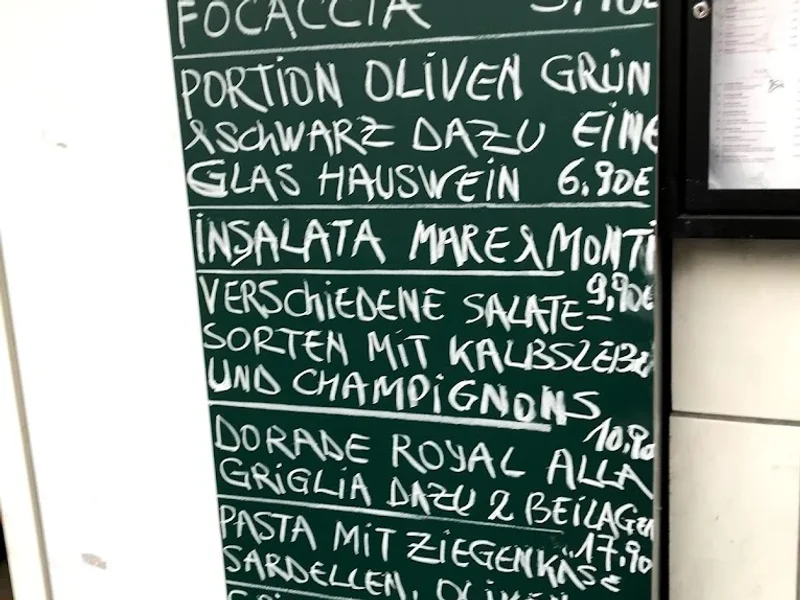 FOCACCIA
PORTION OLIVEN GRÜN
&SCHWARZ DAZU EINE
GLAS HAUSWEIN 6,90€
INSALATA MARE&MONTI
9,90€
VERSCHIEDENE SALATE-
SORTEN MIT KALBSLEBER
UND CHAMPIGNONS
10,90
DORADE ROYAL ALLA
GRIGLIA DAZU 2 BEILAGEN
17,90
PASTA MIT ZIEGENKÄSE
SARDELLEN, OLIVEN